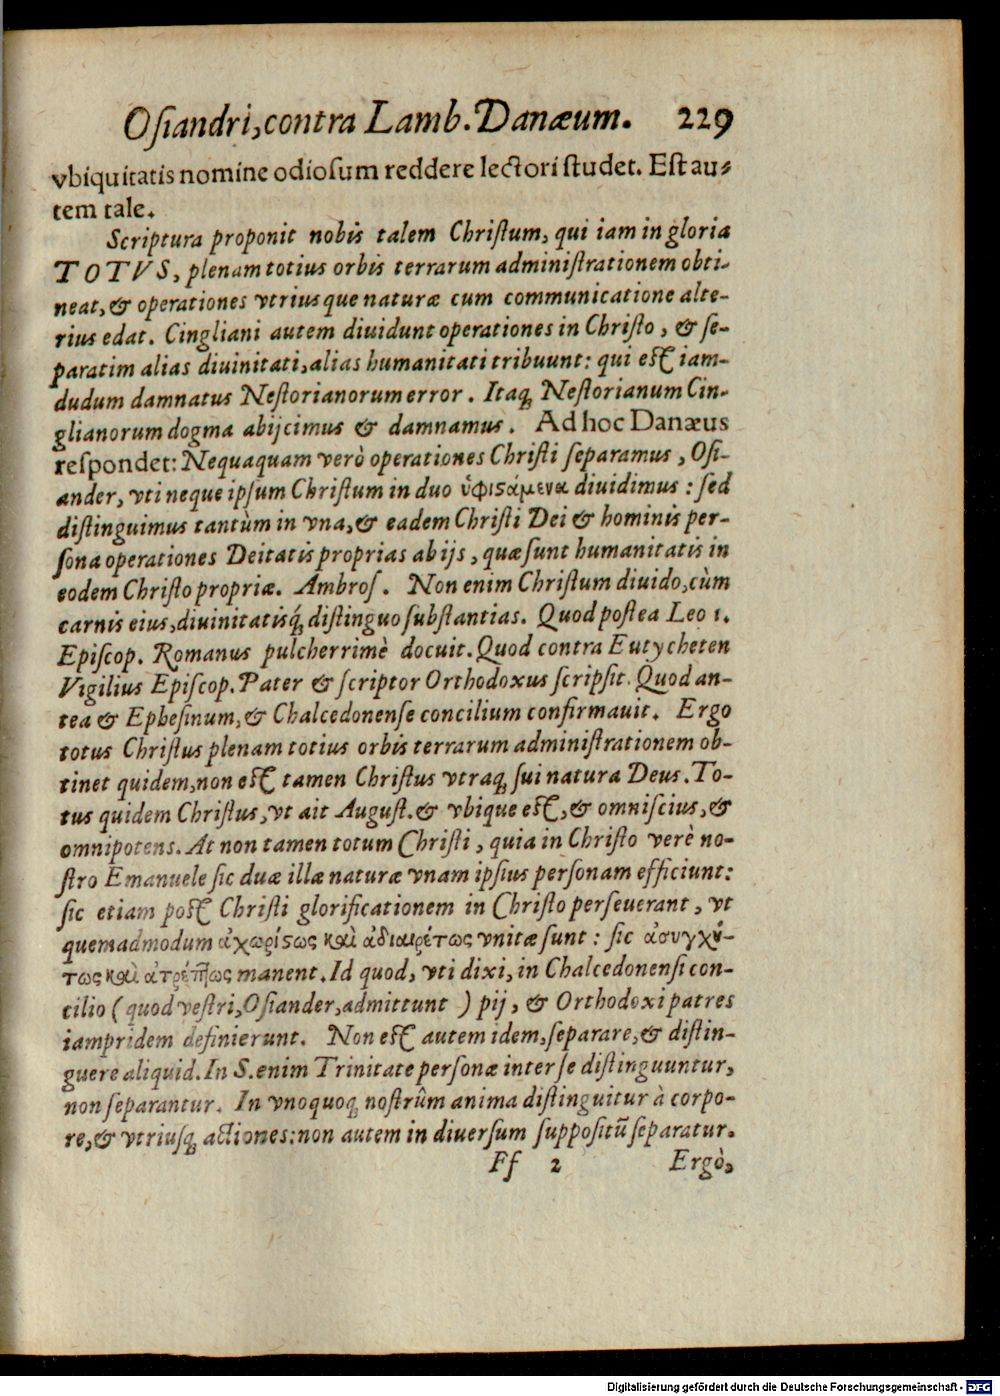 Oſiandri, contra Lamb. Danæum. 229
vbiquitatis nomine odioſum reddere lectori ſtudet. Eſt au-
tem tale.
Scriptura proponit nobis talem Chriſtum, qui iam in gloria
TOTVS, plenam totius orbis terrarum adminiſtrationem obti-
neat, & operationes vtriusque naturæ cum communicatione alte-
rius edat. Cingliani autem diuidunt operationes in Chriſto, & ſe-
paratim alias diuinitati, alias humanitati tribuunt: qui eſt iam-
dudum damnatus Neſtorianorum error. Itaq; Neſtorianum Cin-
glianorum dogma abijcimus & damnamus. Ad hoc Danæus
reſpondet: Nequaquam verò operationes Chriſti ſeparamus, Oſi-
ander, vti neque ipſum Chriſtum in duo ὑφιϛάμενα diuidimus: ſed
diſtinguimus tantùm in vna, & eadem Chriſti Dei & hominis per-
ſona operationes Deitatis proprias ab ijs, quæ ſunt humanitatis in
eodem Chriſto propriæ. Ambroſ. Non enim Chriſtum diuido, cùm
carnis eius, diuinitatisq́; diſtinguo ſubſtantias. Quod poſtea Leo 1.
Epiſcop. Romanus pulcherrimè docuit. Quod contra Eutycheten
Vigilius Epiſcop. Pater & ſcriptor Orthodoxus ſcripſit. Quod an-
tea & Epheſinum, & Chalcedonenſe concilium confirmauit. Ergo
totus Chriſtus plenam totius orbis terrarum adminiſtrationem ob-
tinet quidem, non eſt tamen Chriſtus vtraq; ſui natura Deus. To-
tus quidem Chriſtus, vt ait Auguſt. & vbique eſt, & omniſcius, &
omnipotens. At non tamen totum Chriſti, quia in Chriſto verè no-
ſtro Emanuele ſic duæ illæ naturæ vnam ipſius perſonam efficiunt:
ſic etiam poſt Chriſti glorificationem in Chriſto perſeuerant, vt
quemadmodum ἀχωρίϛως καὶ ἀδιαιρέτως vnitæ ſunt: ſic ἀσυγχύ-
τως καὶ ἀτρέπτως manent. Id quod, vti dixi, in Chalcedonenſi con-
cilio (quod veſtri, Oſiander, admittunt) pij, & Orthodoxi patres
iampridem definierunt. Non eſt autem idem, ſeparare, & diſtin-
guere aliquid. In S. enim Trinitate perſonæ inter ſe diſtinguuntur,
non ſeparantur. In vnoquoq; noſtrûm anima diſtinguitur à corpo-
re, & vtriuſq; actiones: non autem in diuerſum ſuppoſitũ ſeparatur.
Ff 2 Ergò,
Digitalisierung gefördert durch die Deutsche Forschungsgemeinschaft - DFG